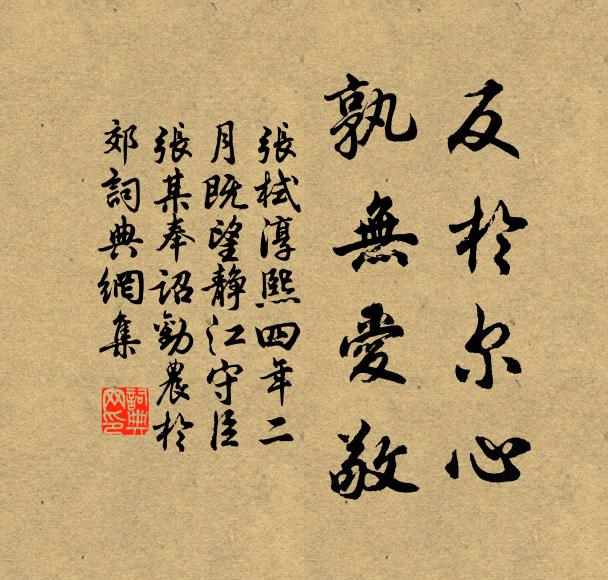 反於尔心
孰無愛敬
張栻淳熙四年二
月既望静江守臣
張某奉詔勸農於
郊詞典網集
詞典
网印